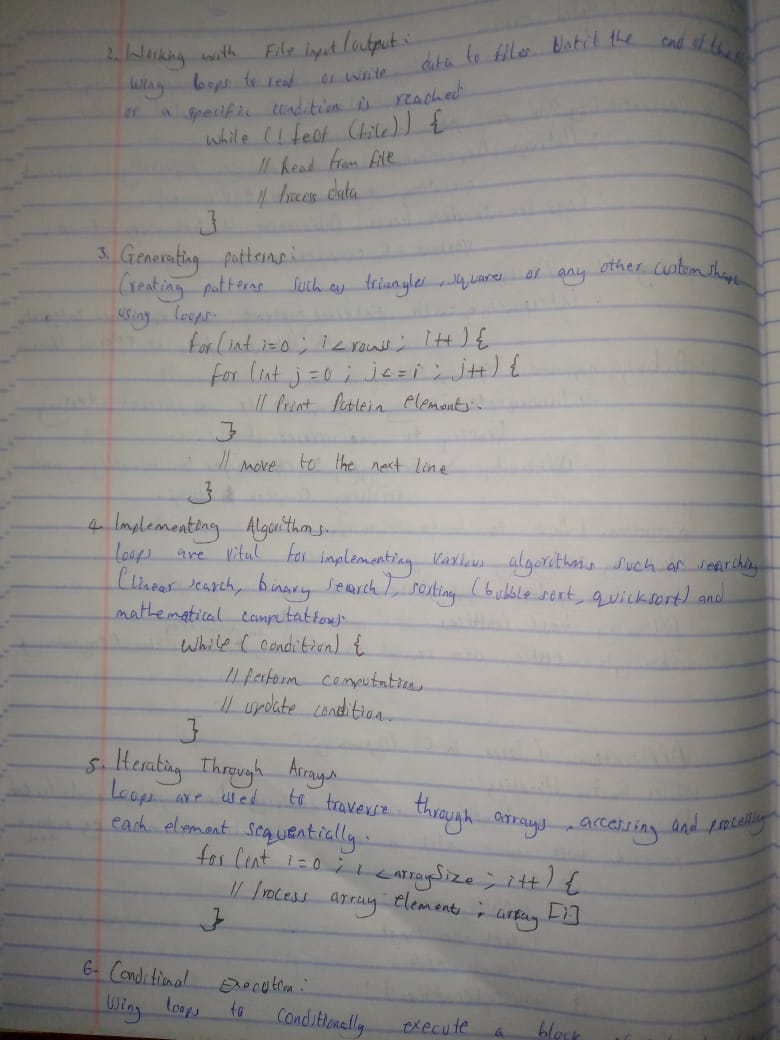 2. Working with File input/output:
Using loops to read or write data to files Until the end of the
or a specific condition is reached
while (!feof (file)) {
// Read from file
// Process data
}
3. Generating patterns:
Creating patterns such as triangles, squares or any other custom shape
using loops.
for (int i=0 ; i<rows ; i++) {
for (int j=0 ; j<=i ; j++) {
// Print Pattern elements.
}
// move to the next line
}
4. Implementing Algorithms.
loops are vital for implementing various algorithms such as searching
(linear search, binary search), sorting (bubble sort, quicksort) and
mathematical computations
while (condition) {
// Perform computation
// update condition.
}
5. Iterating Through Arrays
Loops are used to traverse through arrays, accessing and processing
each element sequentially.
for (int i=0 ; i<arraySize ; i++) {
// Process array element : array [i]
}
6- Conditional Execution:
Using loops to conditionally execute a block